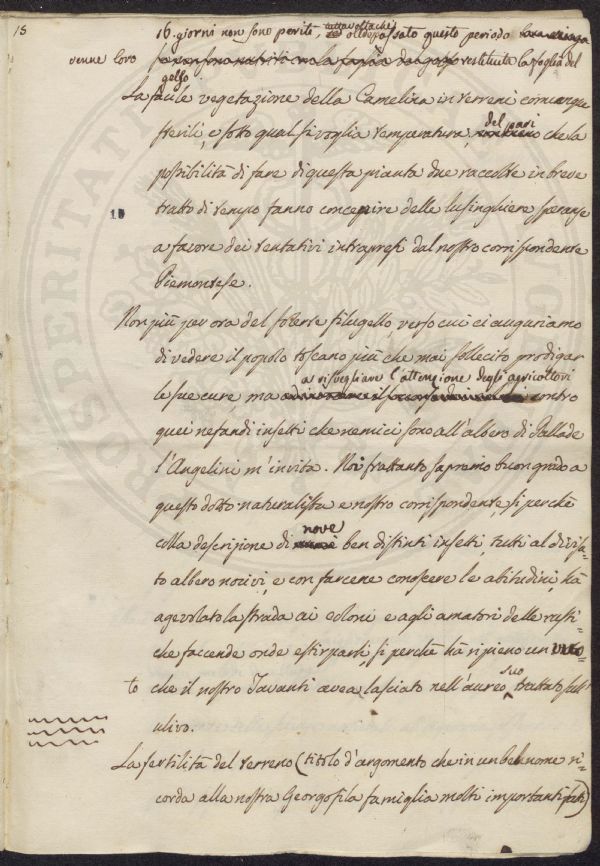 15
16. giorni non sono perite, tuttavoltachè oltrepassato questo periodo
venne loro restituita la foglia del
gelso
La facile vegetazione della Camelina in terreni comunque
sterili, e sotto qualsivoglia temperatura, del pari che la
possibilità di fare di questa pianta due raccolte in breve
tratto di tempo fanno concepire delle lusinghiere speranze
a favore dei tentativi intrapresi dal nostro corrispondente
Piemontese.
Non più per ora del filugello verso cui ci auguriamo
di vedere il popolo toscano più che mai sollecito prodigar
le sue cure, ma a risvegliare l'attenzione degli agricoltori contro
quei nefandi insetti che nemici sono all'albero di Pallade
l'Angelini m'invita. Noi frattanto sapremo buon grado a
questo dotto naturalista e nostro corrispondente, sì perchè
colla descrizione di nove ben distinti insetti, tutti al divisa-
to albero nocivi, e con farcene conoscere le abitudini, hà
agevolato la strada ai coloni e agli amatori delle rusti-
che faccende onde estirparli, sì perchè hà ripieno un vuo-
to che il nostro Tavanti avea lasciato nell'aureo suo trattato sull'
ulivo.
La fertilità del terreno (titolo d'argomento che in un bel nome ri-
corda alla nostra Georgofila famiglia molti importanti fatti)